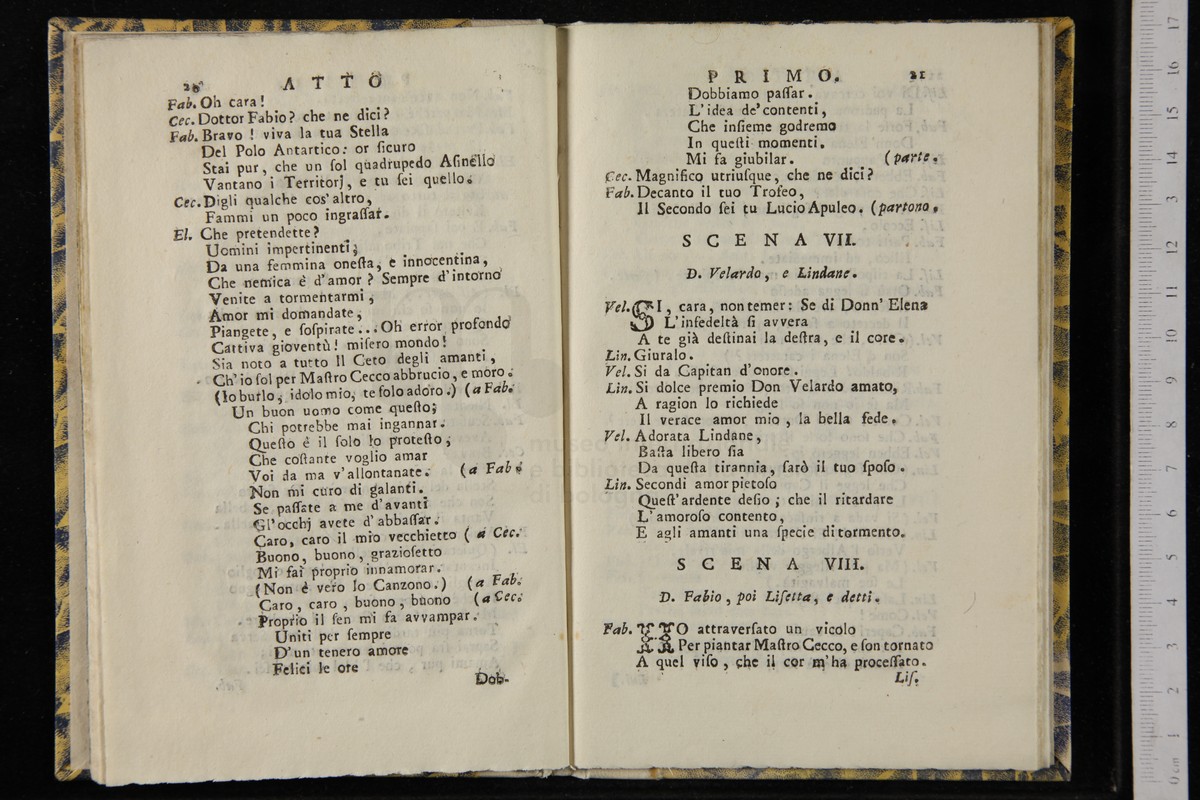 20 ATTO
Fab. Oh cara!
Cec. Dottor Fabio? che ne dici?
Fab. Bravo ! viva la tua Stella
Del Polo Antartico: or ſicuro
Stai pur, che un ſol quadrupedo Aſinello
Vantano i Territorj, e tu ſei quello.
Cec. Digli qualche cos' altro,
Fammi un poco ingraſſar.
El. Che pretendette?
Uomini impertinenti;
Da una femmina oneſta, e innocentina,
Che nemica è d' amor? Sempre d' intorno
Venite a tormentarmi,
Amor mi domandate,
Piangete, e ſoſpirate... Oh error profondo
Cattiva gioventù! miſero mondo!
Sia noto a tutto Il Ceto degli amanti,
Ch' io ſol per Maſtro Cecco abbrucio, e moro.
(Io burlo, idolo mio, te ſolo adoro.) (a Fab.
Un buon uomo come queſto;
Chi potrebbe mai ingannar.
Queſto è il ſolo lo proteſto,
Che coſtante voglio amar
Voi da ma v' allontanate. (a Fab.
Non mi curo di galanti.
Se paſſate a me d' avanti
Gl' occhj avete d' abbaſſar.
Caro, caro il mio vecchietto ( a Cec.
Buono, buono, grazioſetto
Mi fai proprio innamorar.
(Non è vero lo Canzono.) (a Fab.
Caro, caro, buono, buono (a Cec.
Proprio il ſen mi fa avvampar.
Uniti per ſempre
D' un tenero amore
Felici le ore
Dob-
PRIMO. 21
Dobbiamo paſſar.
L' idea de' contenti,
Che inſieme godremo
In queſti momenti.
Mi fa giubilar. (parte.
Cec. Magnifico utriuſque, che ne dici?
Fab. Decanto il tuo Trofeo,
Il Secondo ſei tu Lucio Apuleo. (partono.
SCENA VII.
D. Velardo, e Lindane.
Vel. SI, cara, non temer: Se di Donn' Elena
L' infedeltà ſi avvera
A te già deſtinai la deſtra, e il core.
Lin. Giuralo.
Vel. Si da Capitan d' onore.
Lin. Si dolce premio Don Velardo amato,
A ragion lo richiede
Il verace amor mio, la bella fede.
Vel. Adorata Lindane,
Baſta libero ſia
Da queſta tirannia, ſarò il tuo ſpoſo.
Lin. Secondi amor pietoſo
Queſt' ardente deſio; che il ritardare
L' amoroſo contento,
E agli amanti una ſpecie di tormento.
SCENA VIII.
D. Fabio, poi Liſetta, e detti.
Fab. HO attraverſato un vicolo
Per piantar Maſtro Cecco, e ſon tornato
A quel viſo, che il cor m' ha proceſſato.
Liſ.